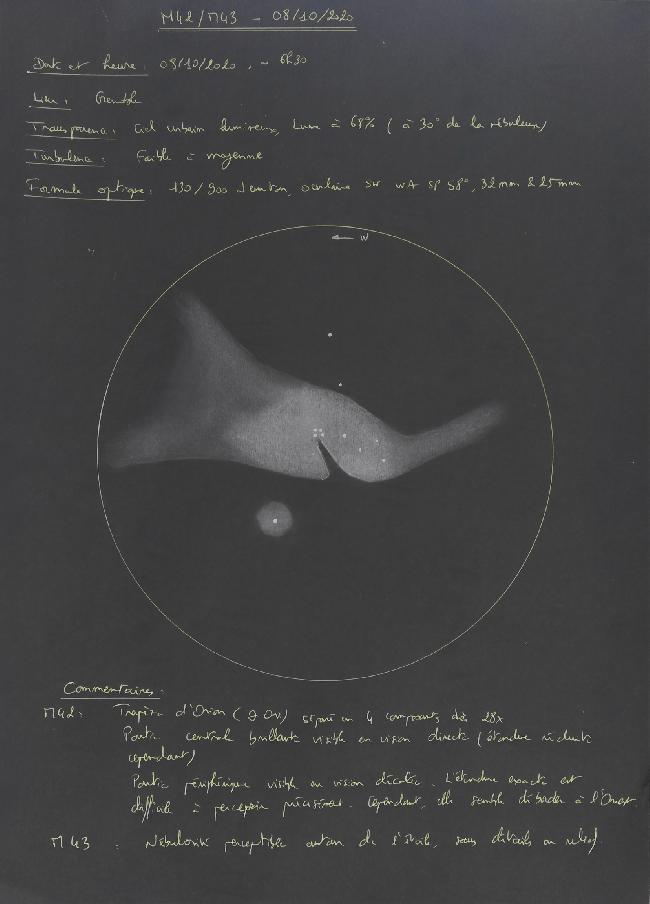 M42/M43 - 08/10/2020
Date et heure : 08/10/2020, ~ 6h30
Lieu : Grenoble
Transparence : Ciel urbain lumineux, Lune à 68% ( à 30° de la nébuleuse)
Turbulence : Faible à moyenne
Formule optique : 130/900 Newton, oculaire SW WA SP 58°, 32mm & 25mm
← W
Commentaires :
M42 : Trapèze d'Orion (θ Ori) séparé en 4 composants dès 28x
Partie centrale brillante visible en vision directe (étendue réduite
cependant)
Partie périphérique visible en vision décalée. L'étendue exacte est
difficile à percevoir précisément. Cependant, elle semble déborder à l'Ouest.
M43 : Nébulosité perceptible autour de l'étoile, sans détails ou relief.